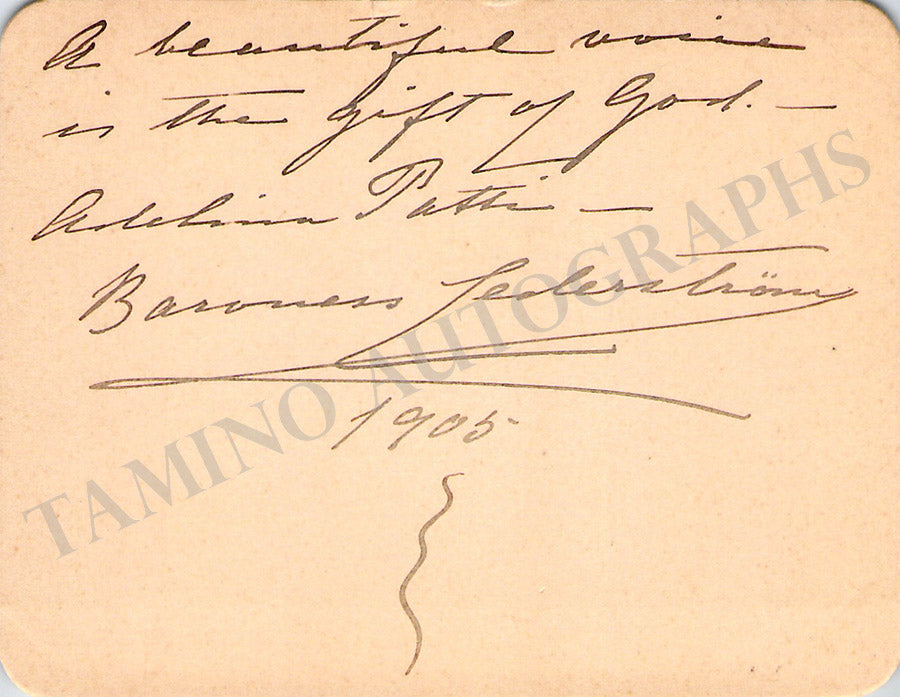 A beautiful voice
is the gift of God. —
Adelina Patti —
Baroness Cederström
1905
TAMINO AUTOGRAPHS